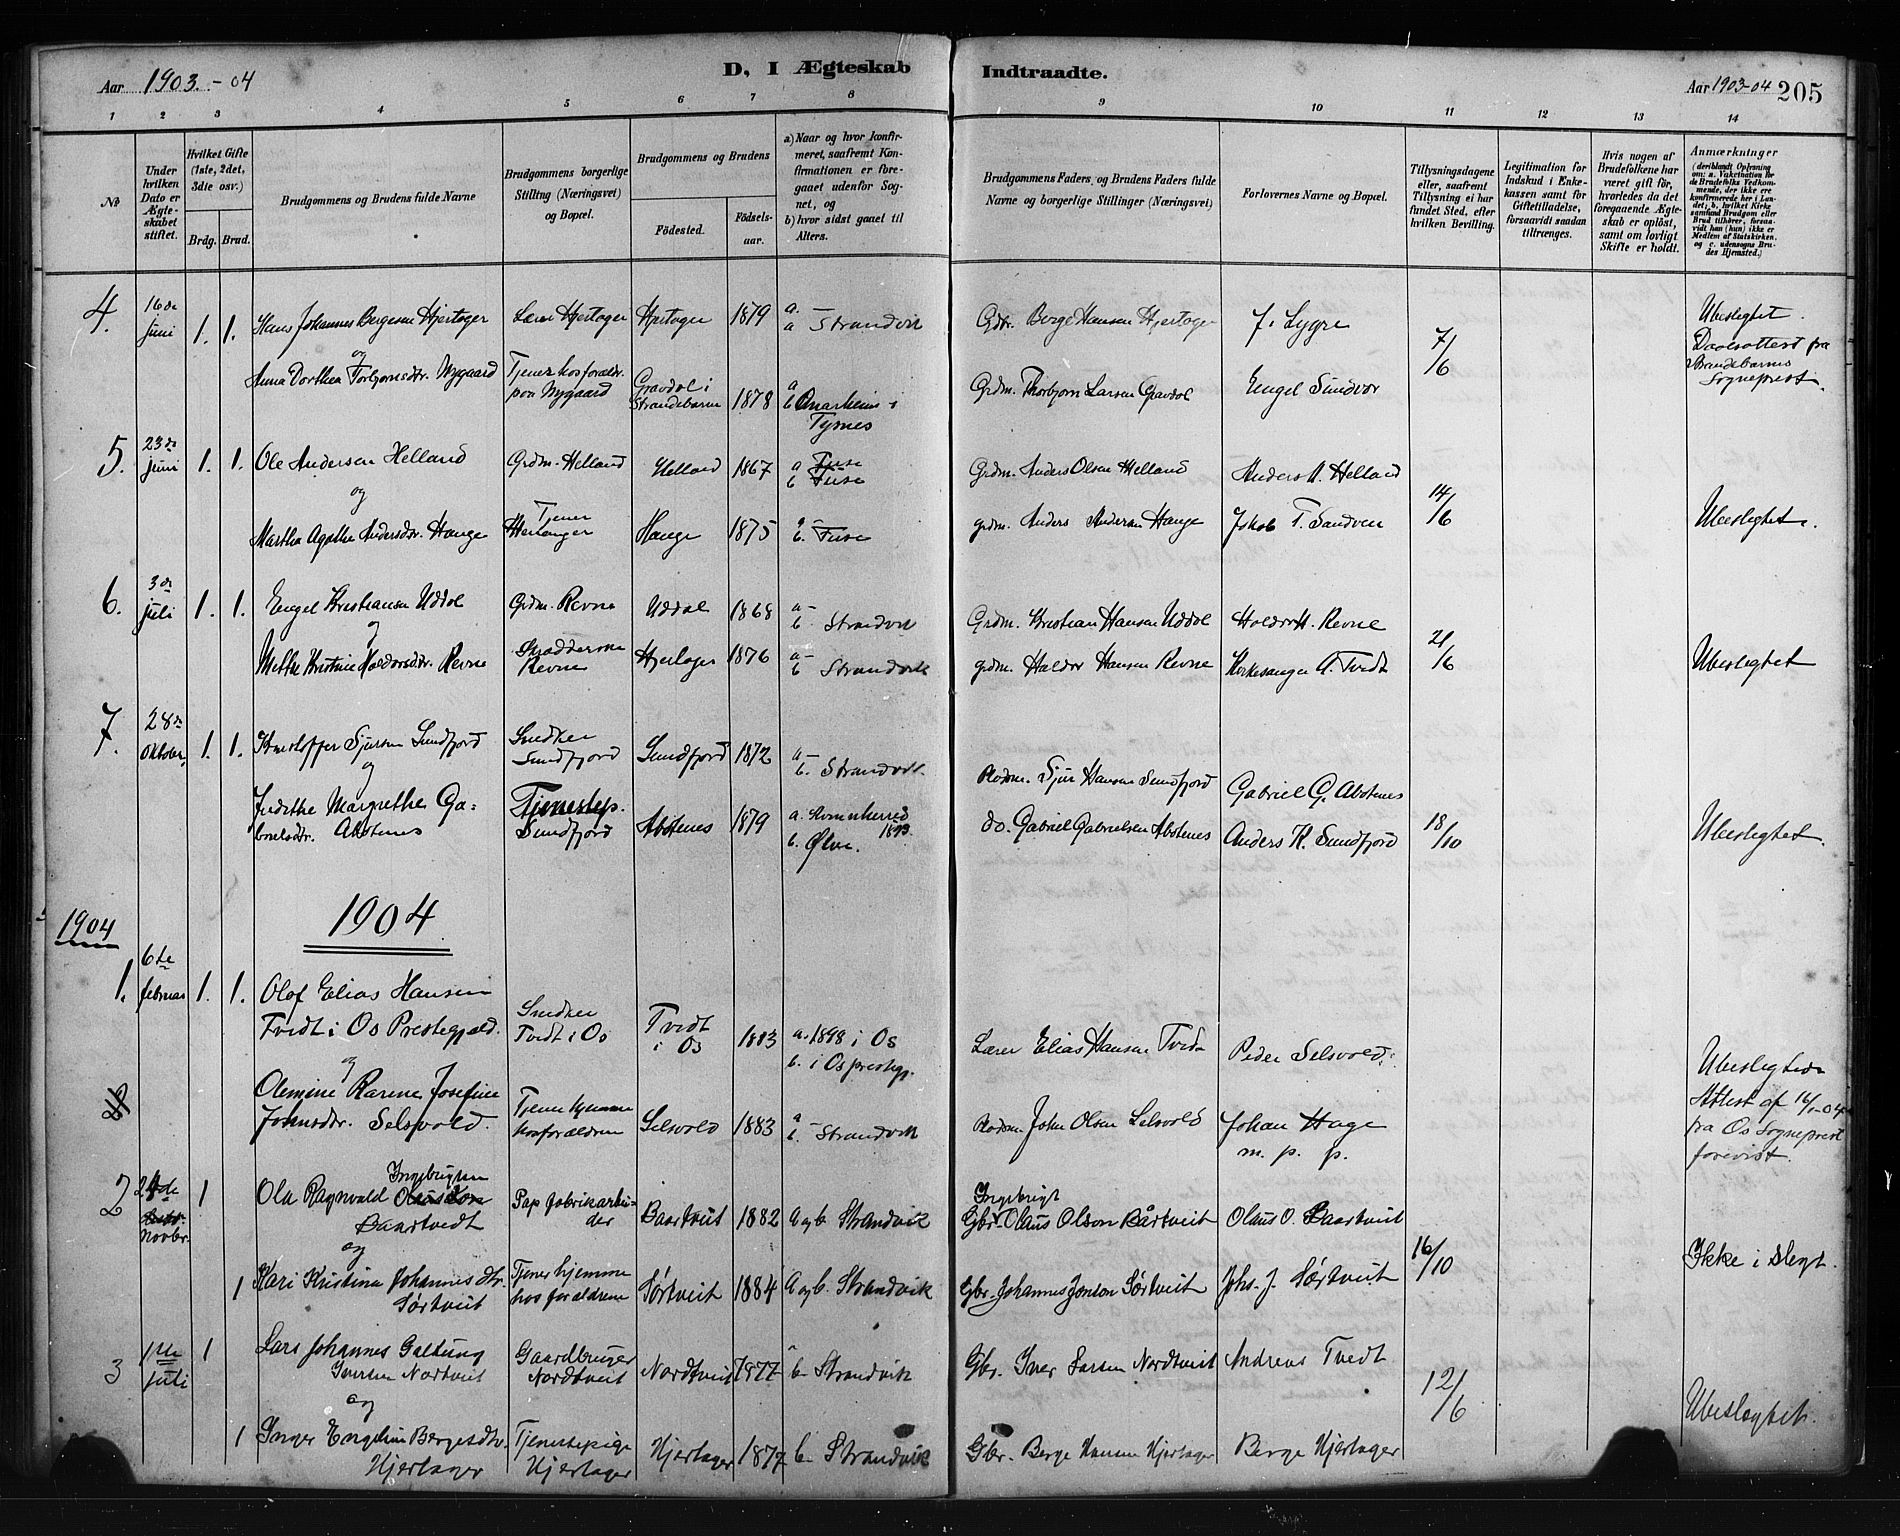 Aar 1903.-04
D, I Ægteskab
Indtraadte.
Aar 1903-04 205
1 2 3 4 5 6 7 8 9 10 11 12 13 14
No
Under hvilken Dato er Ægteskabet stiftet.
Hvilket Gifte (1ste, 2det, 3die osv.)
Brdg. Brud.
Brudgommens og Brudens fulde Navne
Brudgommens borgerlige Stilling (Næringsvei) og Bopæl.
Brudgommens og Brudens
Fødested. Fødsels-aar.
a) Naar og hvor konfirmeret, saafremt Konfirmationen er foregaaet udenfor Sognet, og
b) hvor sidst gaaet til Alters.
Brudgommens Faders og Brudens Faders fulde Navne og borgerlige Stillinger (Næringsvei)
Forlovernes Navne og Bopæl.
Tillysningsdagene eller, saafremt Tillysning ei har fundet Sted, efter hvilken Bevilling.
Legitimation for Indskud i Enkekassen samt for Giftetilladelse, forsaavidt saadan tiltrænges.
Hvis nogen af Brudefolkene har været gift før, hvorledes da det foregaaende Ægteskab er opløst, samt om lovligt Skifte er holdt.
Anmærkninger
(deriblandt Oplysning om: a. Vaccination for de Brudefolks Vedkommende, der ikke ere konfirmerede her i Landet; b. hvilket Kirkesamfund Brudgom eller Brud tilhører, forsaavidt han (hun) ikke er Medlem af Statskirken, og c. udensogns Brudes Hjemsted.)
4. 16de juni 1. 1. Hans Johannes Bergesen Hjertager Hjertager Hjertager 1879 a. Strandvik Gdbr. Berge Hansen Hjertager J. Lygre 7/6 Ubeslegtet.
og
Anna Dorthea Torbjørnsdtr. Nygaard Tjener hos forældr. paa Nygaard Gravdal i Strandebarm 1878 a b Onarheim i Tysnes Grdm. Thorbjørn Larsen Gravdal Engel Sundvor Daabsattest fra Strandebarms Sogneprest.
5. 23de juni 1. 1. Ole Andersen Helland Grdm. Helland Helland 1867 a Fuse b Fuse Grdm. Anders Olsen Helland Anders A. Helland 14/6
og
Martha Agathe Andersdtr. Hauge Tjener Hauge 1875 b. Fuse grdm. Anders Andersen Hauge Jakob T. Sandven Ubeslegtet.
6. 3de juli 1. 1. Engel Kristiansen Uddal Grdm. Revne Uddal 1868 a b. Strandvik Grdm. Kristian Hansen Uddal Haldor H. Revne 21/6
og
Mette Kristine Haldorsdtr. Revne Revne Hjertager 1876 a b Strandvik grdm. Haldor Hansen Revne Kirkesanger A. Tvedt Ubeslegtet
7. 28de oktober, 1. 1. Kristoffer Sjursen Sundfjord Snedker Sundfjord Sundfjord 1872 a b. Strandvik. Sjur Hansen Sundfjord Gabriel G. Abotnes 18/10
og
Judithe Margrethe Gabrielsdtr. Abotnes Tjenestep. Sundfjord Abotnes 1879 a. Kvinnherred 1893. b. Ølve. do. Gabriel Gabrielsen Abotnes Anders K. Sundfjord Ubeslegtet.
1904
1904
1. 6te februar 1. 1. Olof Elias Hansen Tvedt i Os Prestegjæld. Snedker Tvedt i Os Tvedt i Os 1883 a. 1898 i Os b. i Os prestegj. Lærer Elias Hansen Tvedt Peder Selsvold
og
Olemine Karine Josefine Johnsdtr. Selsvold. Tjener hjemme hos forældrene Selsvold 1883 a b. Strandvik John Olsen Selsvold Johan Hage m. p. p. Attest af 16/1-04 fra Os Sogneprest forevist.
2 24de novbr. 1 Ola Ragnvald Ingebrigtsen Baartvedt Papfabrikarbeider Baartveit 1882 a og b. Strandvik Ingebrigt Gbr. Olaus Olson Bårtveit Olaus O. Baartveit 16/10 Ikke i slegt.
og
1 Kari Kristina Johannesdtr. Sørtveit Tjener hjemme hos forældrene Sørtveit 1884 a og b. Strandvik Gbr. Johannes Jonson Sørtveit Johs. J. Sørtveit
3 1ste juli 1 Lars Johannes Galtung Iversen Nordtveit Gaardbruger Nordtveit Nordtveit 1877 b Strandvik Gbr. Iver Larsen Nordtveit Andreas Tvedt 12/6 Ubeslegtet.
og
1 Inger Engeline Bergesdtr. Hjertager Tjenestepige Hjertager Hjertager 1877 b Strandvik Gbr. Berge Hansen Hjertager Berge Hjertager